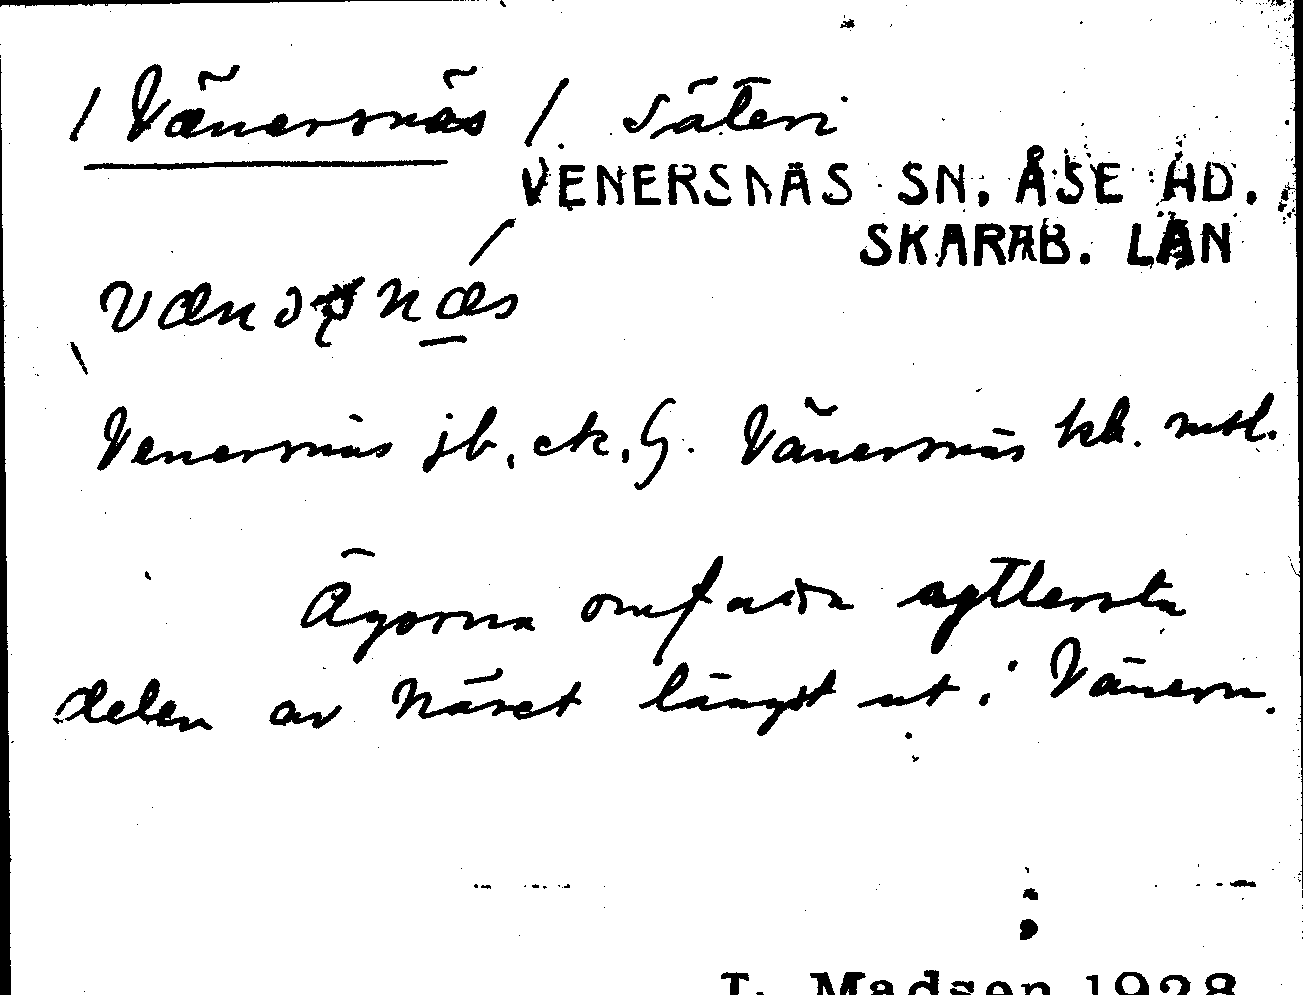 / Vänersnäs / säteri
VENERSNÄS SN. ÅSE HD.
SKARAB. LÄN
Venersnäs jb, ek, G. Vänersnäs kb. mtl.
Ägorna omfatta yttersta
delen av Näset längst ut i Vänern.
L. Madsen 1928